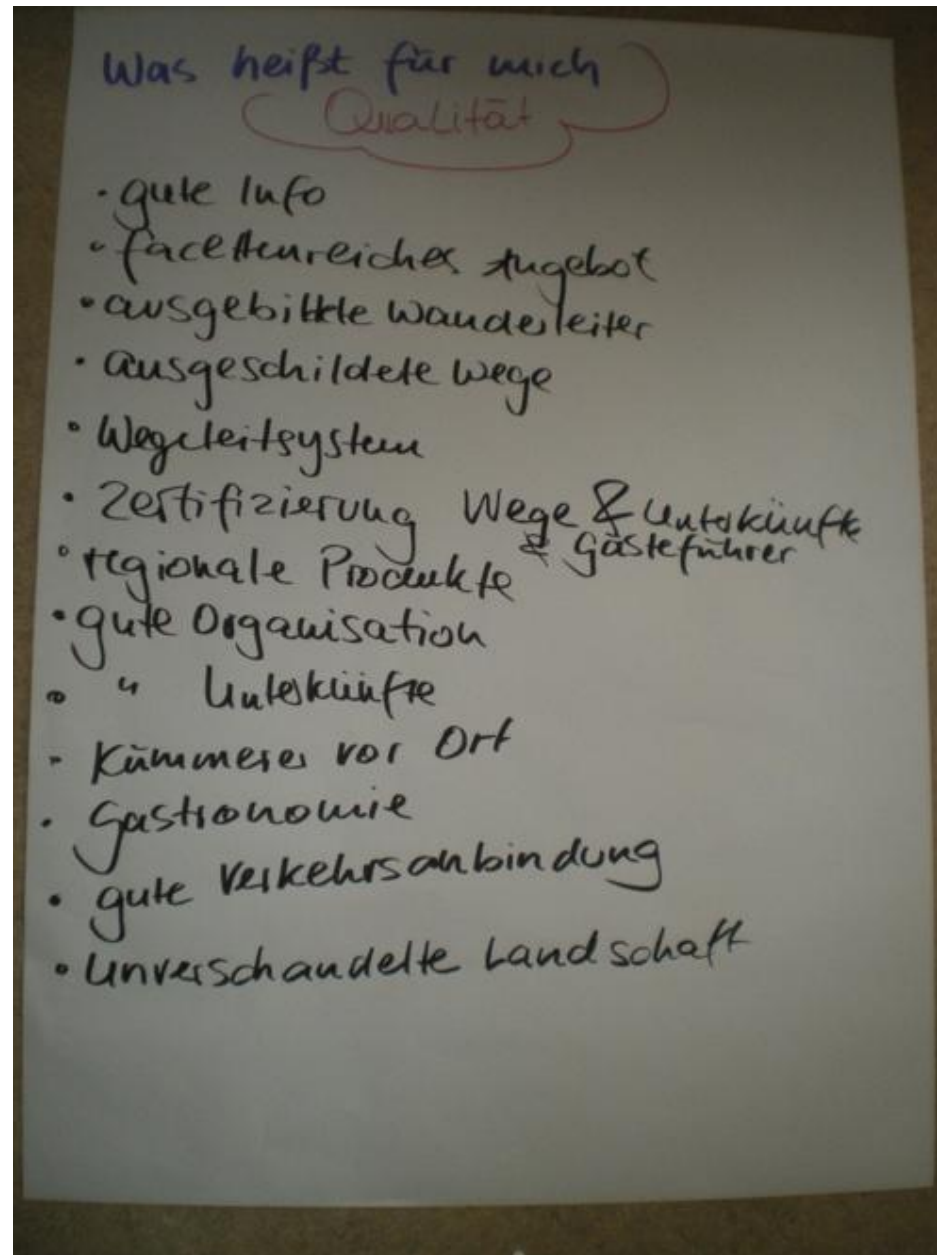 Was heißt für mich
Qualität
• gute Info
• facettenreiches Angebot
• ausgebildete Wanderleiter
• ausgeschildete Wege
• Wegeleitsystem
• Zertifizierung Wege & Unterkünfte
& Gästeführer
• regionale Produkte
• gute Organisation
• " Unterkünfte
• Kümmerer vor Ort
• Gastronomie
• gute Verkehrsanbindung
• Unverschandelte Landschaft